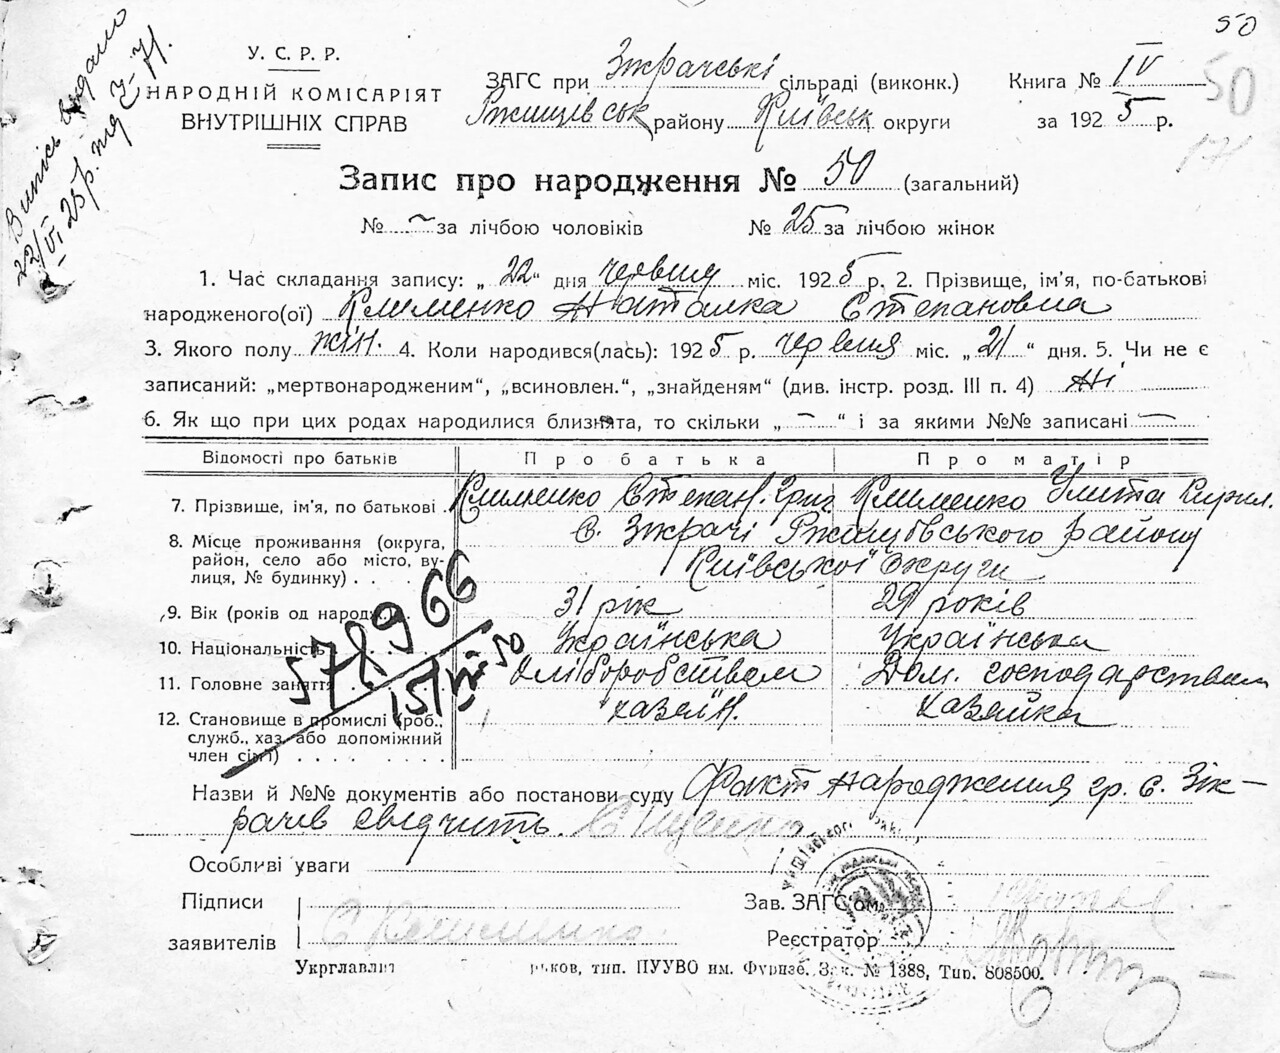 50
У. С. Р. Р.
НАРОДНІЙ КОМІСАРІЯТ
ВНУТРІШНІХ СПРАВ
Випись видано
22/VI 25 р.
ЗАГС при Зікрачські сільраді (виконк.) Книга № IV
50
Ржищевськ району Київськ округи за 1925 р.
171
Запис про народження № 50 (загальний)
№ — за лічбою чоловіків № 25 за лічбою жінок
1. Час складання запису: „22“ дня червня міс. 1925 р. 2. Прізвище, ім'я, по-батькові
народженого(ої) Клименко Наталка Степановна
3. Якого полу жін. 4. Коли народився(лась): 1925 р. червня міс. „21“ дня. 5. Чи не є
записаний: „мертвонародженим“, „всиновлен.“, „знайденям“ (див. інстр. розд. III п. 4) Ні
6. Як що при цих родах народилися близнята, то скільки „ — “ і за якими №№ записані —
Відомості про батьків Про батька Про матір
7. Прізвище, ім'я, по батькові . Клименко Степан. Григ. Клименко Улита Кирил.
8. Місце проживання (округа, район, село або місто, вулиця, № будинку) . . . с. Зікрачі Ржищівського району
Київської Округи
9. Вік (років од народж. 31 рік 29 років
10. Національність Українська Українська
11. Головне заняття Хліборобством Дом. господарством
12. Становище в промислі (роб., служб., хаз. або допоміжний член сім'ї) . . . . хазяїн. хазяйка
578966
151
50
Назви й №№ документів або постанови суду Факт народження гр. с. Зік-
рачів свідчить.
Особливі уваги
Підписи
заявителів С Клименко
Зав. ЗАГС'ом
Реєстратор
Укрглавліт рьков, тип. ПУУВО им. Фрунзе. Зак. № 1388, Тир. 808500.